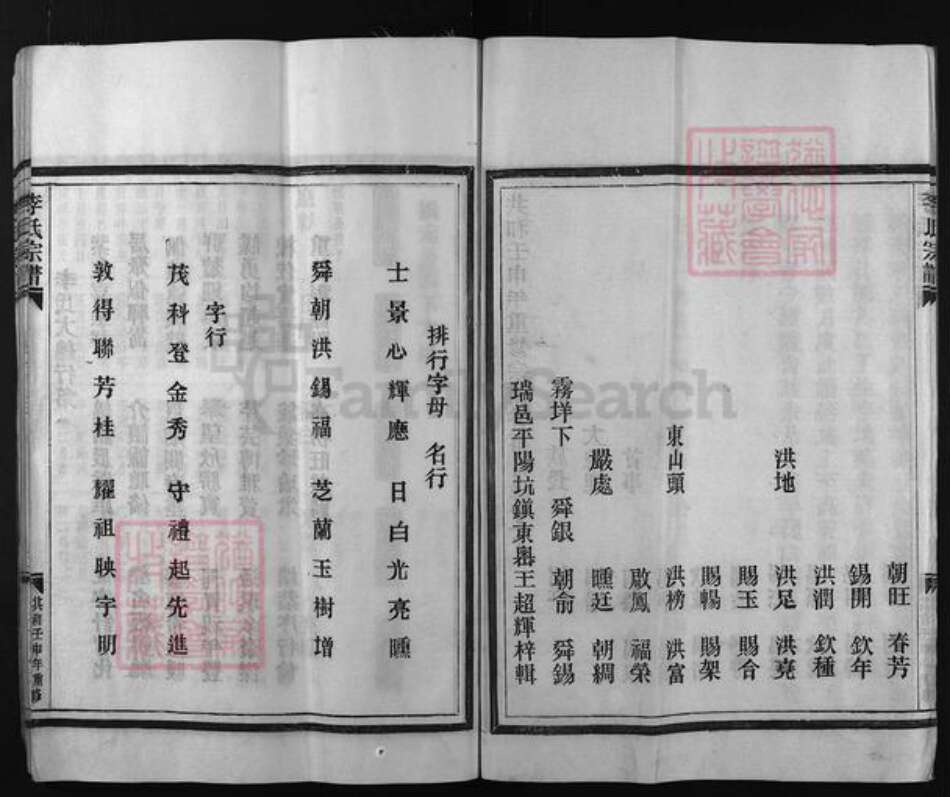 李氏宗譜
朝旺 春芳
錫開 欽年
洪潤 欽種
洪地 洪足 洪堯
賜玉 賜合
賜暢 賜架
東山頭 洪榜 洪富
啟鳳 福榮
嚴處 曛廷 朝綢
霧垟下 舜銀 朝俞 舜錫
瑞邑平陽坑鎮東嶴王超輝梓輯
排行字母 名行
士景心輝應 日白光亮曛
舜朝洪錫福 芝蘭玉樹增
字行
茂科登金秀 守禮起先進
敦得聯芳桂 耀祖映宇明
李氏宗譜
共和壬申年重修
FamilySearch